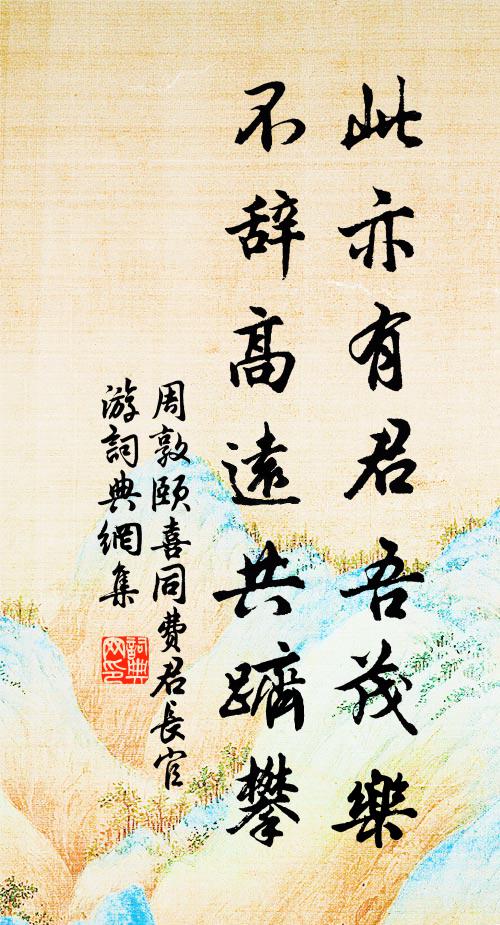 此亦有君吾茂樂
不辞高遠共躋攀
周敦颐喜同費君長官
游詞典網集
詞典
网印